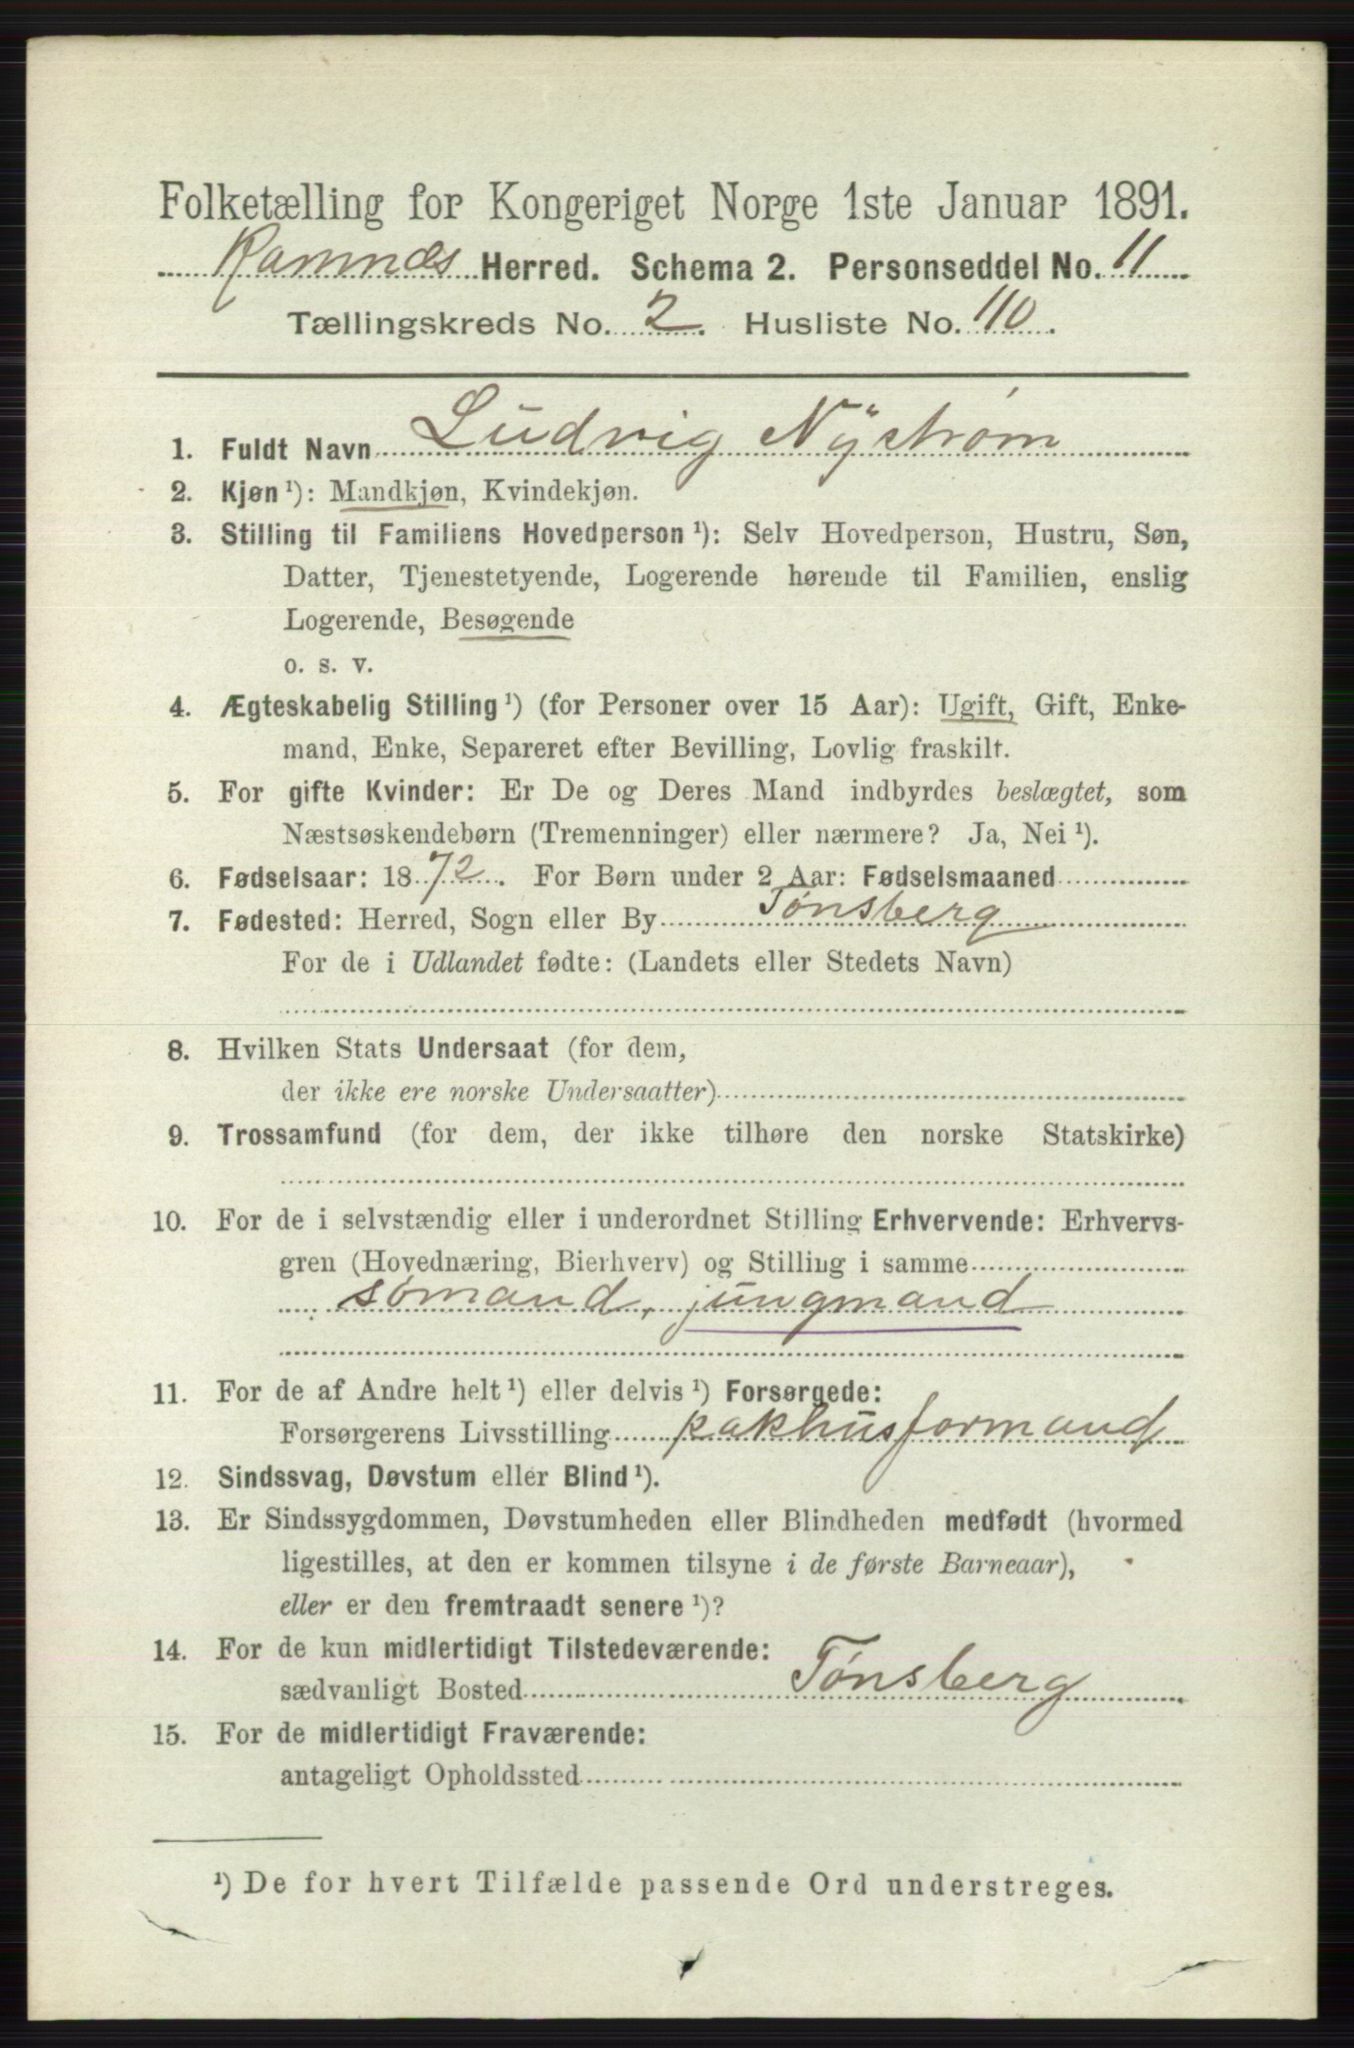 Folketælling for Kongeriget Norge 1ste Januar 1891.
Ramnæs Herred. Schema 2. Personseddel No. 11
Tællingskreds No. 2. Husliste No. 110.
1. Fuldt Navn Ludvig Nÿstrøm
2. Kjøn ¹): Mandkjøn, Kvindekjøn.
3. Stilling til Familiens Hovedperson ¹): Selv Hovedperson, Hustru, Søn,
Datter, Tjenestetyende, Logerende hørende til Familien, enslig
Logerende, Besøgende
o. s. v.
4. Ægteskabelig Stilling ¹) (for Personer over 15 Aar): Ugift, Gift, Enke-
mand, Enke, Separeret efter Bevilling, Lovlig fraskilt.
5. For gifte Kvinder: Er De og Deres Mand indbyrdes beslægtet, som
Næstsøskendebørn (Tremenninger) eller nærmere? Ja, Nei ¹).
6. Fødselsaar: 1872. For Børn under 2 Aar: Fødselsmaaned
7. Fødested: Herred, Sogn eller By Tønsberg
For de i Udlandet fødte: (Landets eller Stedets Navn)
8. Hvilken Stats Undersaat (for dem,
der ikke ere norske Undersaatter)
9. Trossamfund (for dem, der ikke tilhøre den norske Statskirke)
10. For de i selvstændig eller i underordnet Stilling Erhvervende: Erhvervs-
gren (Hovednæring, Bierhverv) og Stilling i samme
sømand, jungmand
11. For de af Andre helt ¹) eller delvis ¹) Forsørgede:
Forsørgerens Livsstilling pakhusformand
12. Sindssvag, Døvstum eller Blind ¹).
13. Er Sindssygdommen, Døvstumheden eller Blindheden medfødt (hvormed
ligestilles, at den er kommen tilsyne i de første Barneaar),
eller er den fremtraadt senere ¹)?
14. For de kun midlertidigt Tilstedeværende:
sædvanligt Bosted Tønsberg
15. For de midlertidigt Fraværende:
antageligt Opholdssted
¹) De for hvert Tilfælde passende Ord understreges.